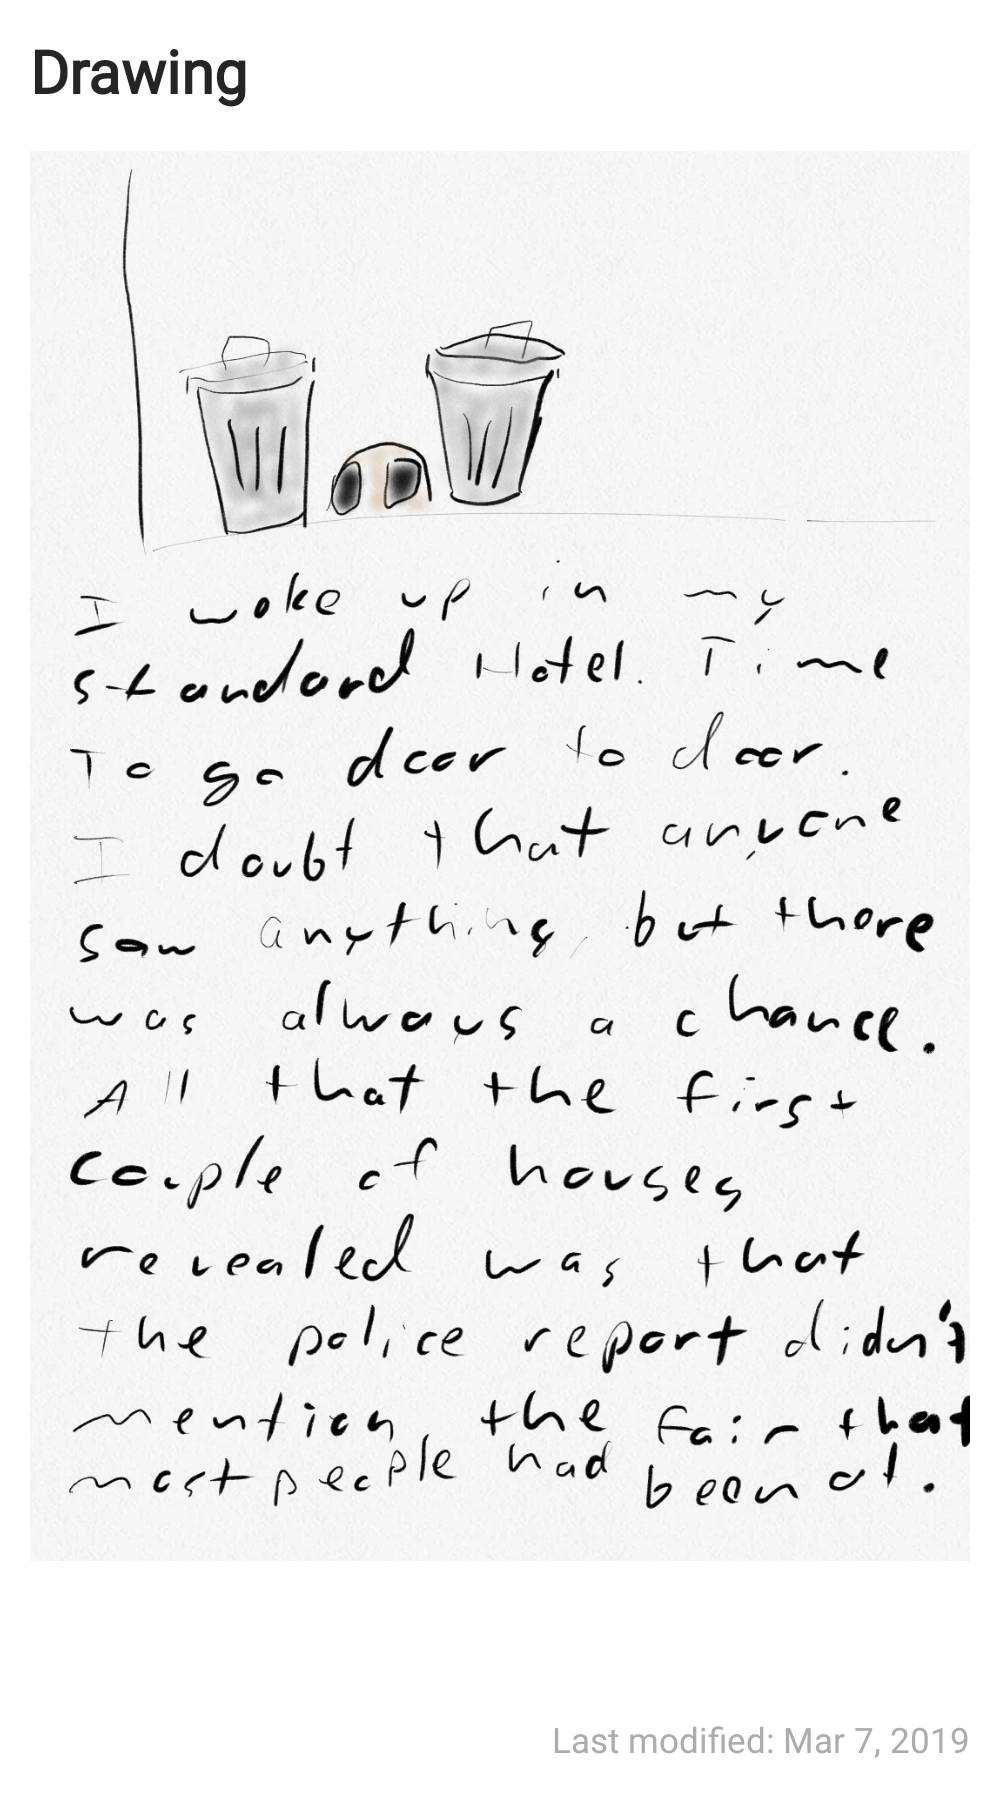 Drawing
I woke up in my
standard Hotel. Time
To go door to door.
I doubt that anyone
saw anything, but there
was always a chance.
All that the first
couple of houses
revealed was that
the police report didn't
mention, the fair that
most people had been at.
Last modified: Mar 7, 2019